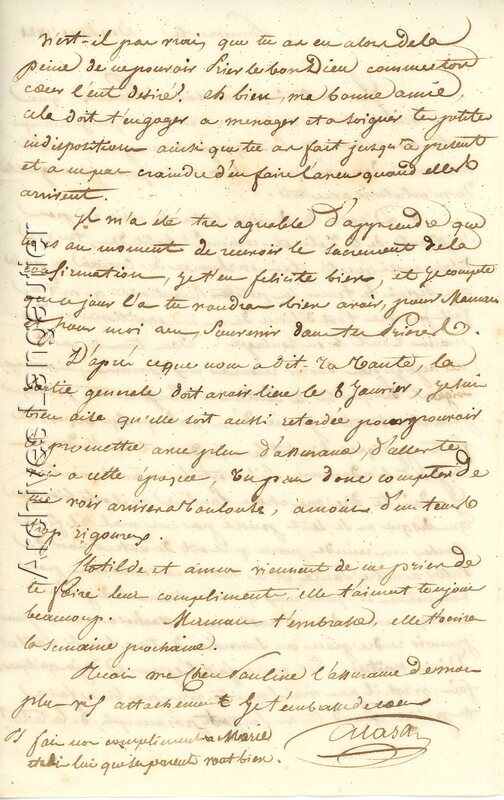 n'est-il pas vrais, que tu as eu alors de la
peine de ne pouvoir Prier le bon Dieu comme ton
cœur l'eut desiré? eh bien, ma bonne amie,
cela doit t'engager a menager et a soigner tes petites
indispositions ainsi que tu as fait jusqu'à present
et a ne pas craindre d'en faire l'aveu quand elles
arrivent.
Il m'a été tres agreable d'apprendre que
tu es au moment de recevoir le sacrement de la
confirmation, je t'en felicite bien, et je compte
que ce jour la tu voudras bien avoir, pour Maman
et pour moi un Souvenir dans tes Prieres.
D'après ce que nous a dit Ta Tante, la
sortie generale doit avoir lieu le 8 Janvier, je suis
bien aise qu'elle soit aussi retardée pour pouvoir
promettre avec plus d'assurance, d'aller te
voir a cette époque, tu peux donc compter de
me voir arriver a Toulouse, amoins d'un temps
trop rigoureux.
Clotilde et viennent de me prier de
te faire leur compliment, elle t'aiment toujours
beaucoup. Maman t'embrasse, elle t'ecrira
la semaine prochaine.
Recois ma Chere Pauline l'assurance de mon
plus vif attachement Je t'embrasse de cœur
PS fais nos compliments a Marie
et dis lui que ses parents vont bien.
Archives Langautier